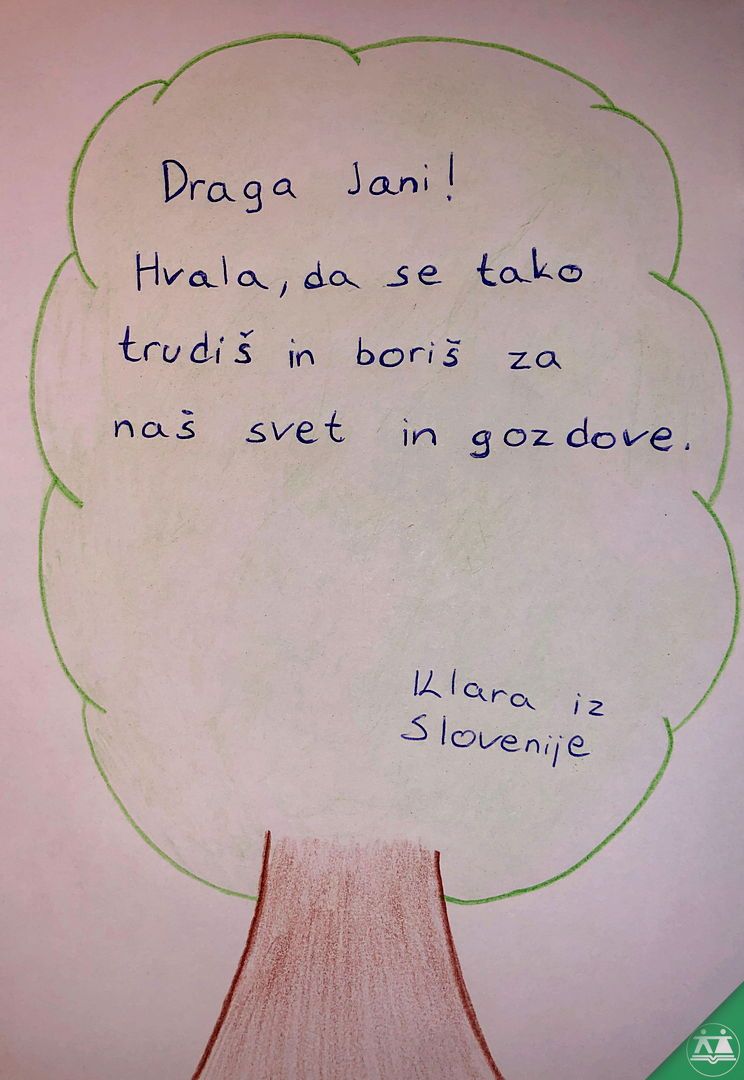 Draga Jani!
Hvala, da se tako
trudiš in boriš za
naš svet in gozdove.
Klara iz
Slovenije